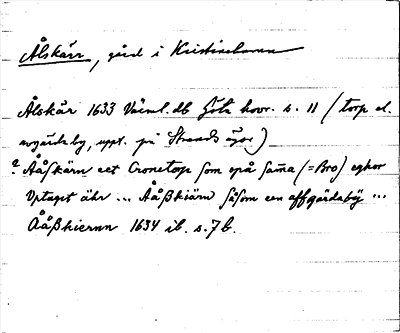 Ålskärr, gård i Kristinehamn
Ålskär 1633 Värml. db Göta hovr. s. 11 (torp el.
avgärdaby, uppt. på Strands ägor)
? Ååskärn eet Cronetorp som opå samma (=Bro) eghor
Uptaget ähr ... Ååßkiärn såsom een affgärdabÿ ...
Aåßkiernn 1634 ib. s. 7 b.